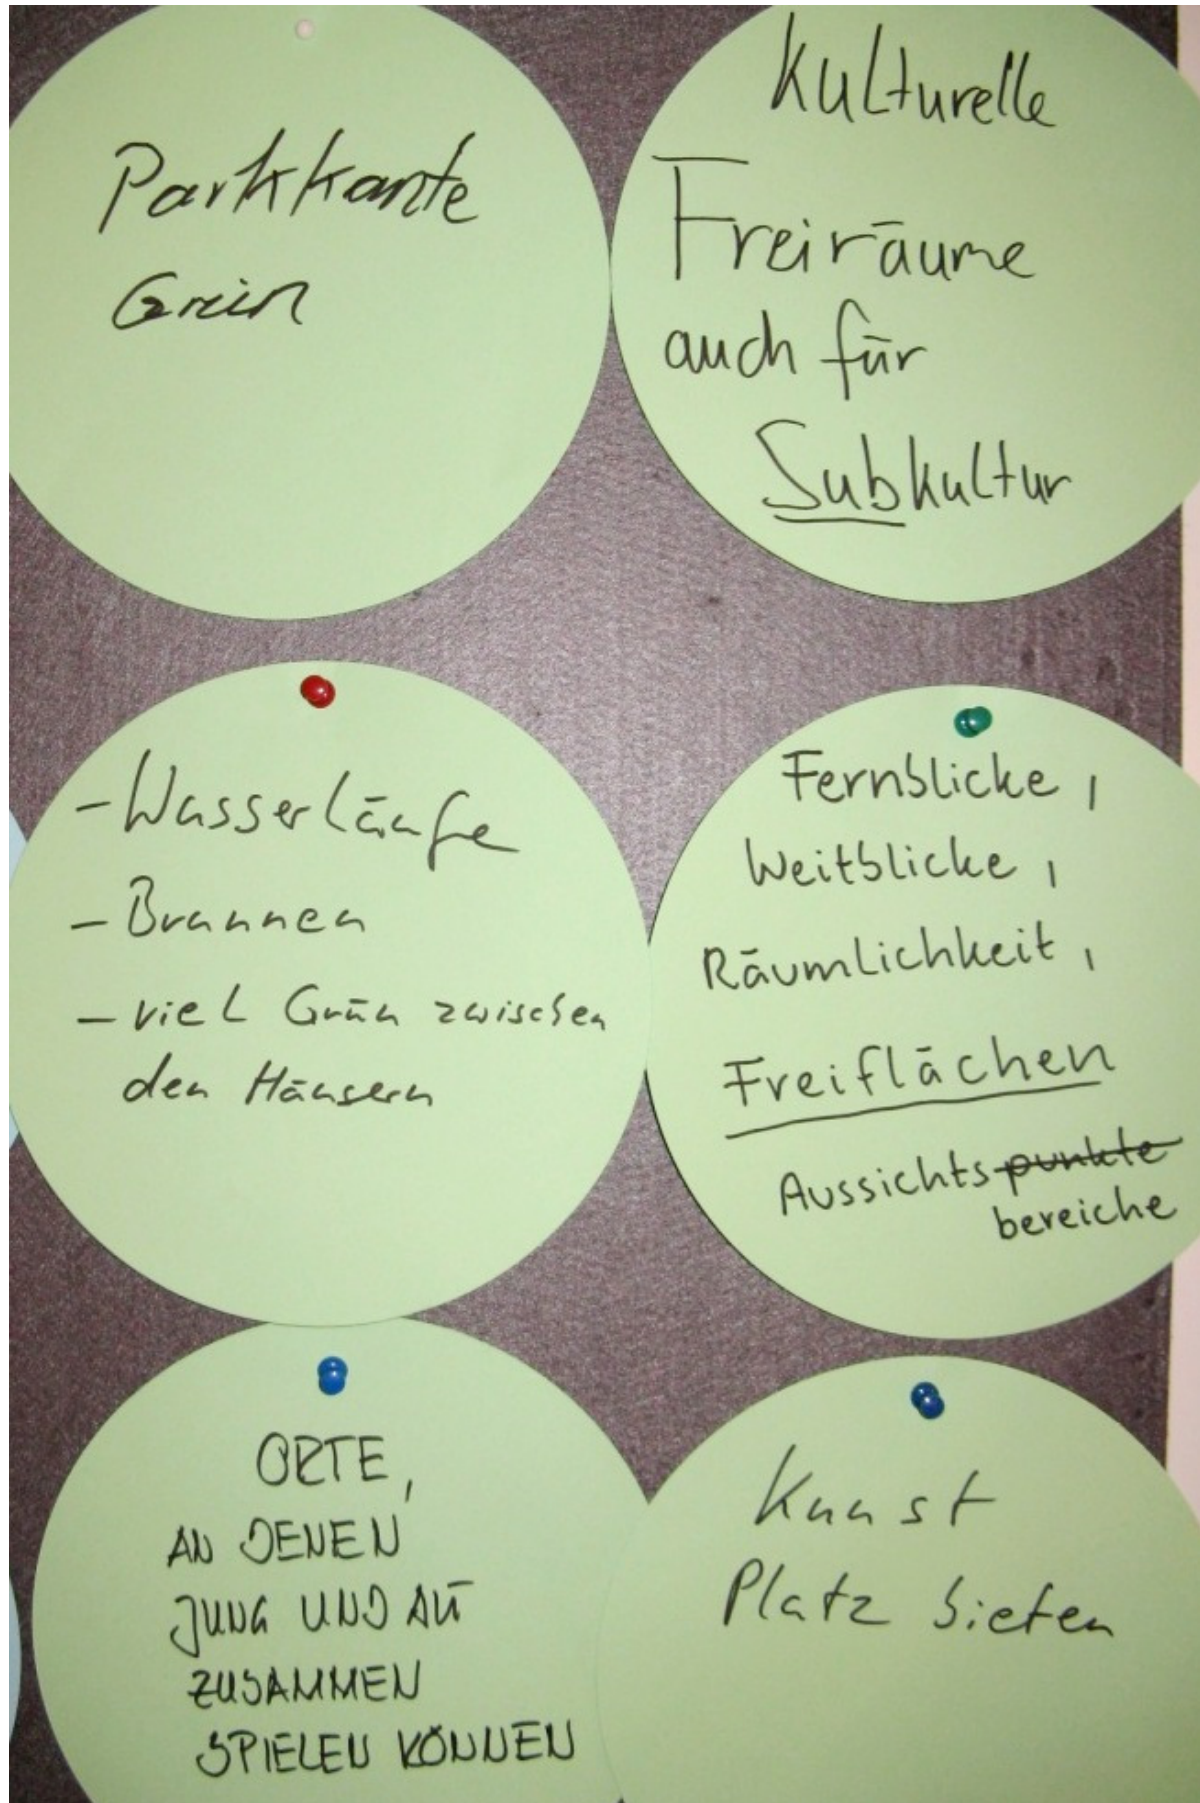 Parkkante
Grün
Kulturelle
Freiräume
auch für
Subkultur
- Wasserläufe
- Brunnen
- viel Grün zwischen
den Häusern
Fernblicke,
Weitblicke,
Räumlichkeit,
Freiflächen
Aussichtspunkte
bereiche
ORTE,
AN DENEN
JUNG UND ALT
ZUSAMMEN
SPIELEN KÖNNEN
Kunst
Platz bieten